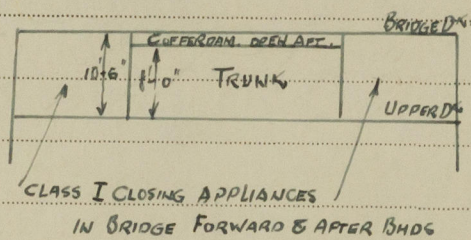 BRIDGE DK.
COFFERDAM. OPEN AFT.
10'-6"
8'-0"
TRUNK
UPPER DK
CLASS I CLOSING APPLIANCES
IN BRIDGE FORWARD & AFTER BHDS